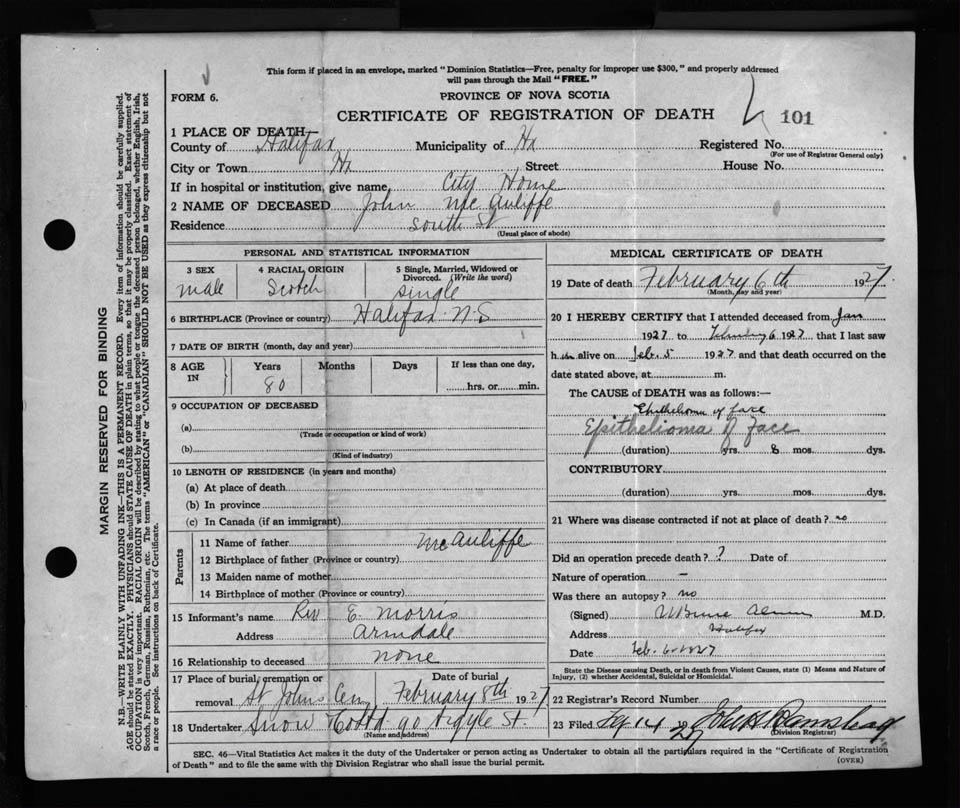 This form if placed in an envelope, marked "Dominion Statistics—Free, penalty for improper use $300," and properly addressed
will pass through the Mail "FREE."
FORM 6.
PROVINCE OF NOVA SCOTIA
CERTIFICATE OF REGISTRATION OF DEATH
101
1 PLACE OF DEATH—
County of Halifax Municipality of Hx Registered No.
(For use of Registrar General only)
City or Town Hx Street House No.
If in hospital or institution, give name, City Home
2 NAME OF DECEASED John McAuliffe
Residence South St
(Usual place of abode)
PERSONAL AND STATISTICAL INFORMATION
3 SEX
male
4 RACIAL ORIGIN
Scotch
5 Single, Married, Widowed or
Divorced. (Write the word)
single
6 BIRTHPLACE (Province or country) Halifax N.S
7 DATE OF BIRTH (month, day and year)
8 AGE
IN
Years
80
Months
Days
If less than one day,
hrs. or min.
9 OCCUPATION OF DECEASED
(a)
(Trade or occupation or kind of work)
(b)
(Kind of industry)
10 LENGTH OF RESIDENCE (in years and months)
(a) At place of death
(b) In province
(c) In Canada (if an immigrant)
Parents
11 Name of father McAuliffe
12 Birthplace of father (Province or country)
13 Maiden name of mother
14 Birthplace of mother (Province or country)
15 Informant's name Rev E. Morris
Address Armdale
16 Relationship to deceased none
17 Place of burial, cremation or
removal St Johns Cem
Date of burial
February 8th 1927
18 Undertaker Snow & Co Ltd 90 Argyle St.
(Name and address)
MEDICAL CERTIFICATE OF DEATH
19 Date of death February 6th 1927
(Month, day and year)
20 I HEREBY CERTIFY that I attended deceased from Jan
1927 to February 6 1927, that I last saw
him alive on Feb. 5 1927 and that death occurred on the
date stated above, at m.
The CAUSE OF DEATH was as follows:—
Epithelioma of face
Epithelioma of Face
(duration) yrs. 8 mos. dys.
CONTRIBUTORY
(duration) yrs. mos. dys.
21 Where was disease contracted if not at place of death? no
Did an operation precede death? ? Date of
Nature of operation –
Was there an autopsy? no
(Signed) M.D.
Address Halifax
Date Feb. 6 1927
State the Disease causing Death, or in death from Violent Causes, state (1) Means and Nature of
Injury, (2) whether Accidental, Suicidal or Homicidal.
22 Registrar's Record Number
23 Filed 14 1927
(Division Registrar)
SEC. 46—Vital Statistics Act makes it the duty of the Undertaker or person acting as Undertaker to obtain all the particulars required in the "Certificate of Registration
of Death" and to file the same with the Division Registrar who shall issue the burial permit.
(OVER)
MARGIN RESERVED FOR BINDING
N.B.—WRITE PLAINLY WITH UNFADING INK—THIS IS A PERMANENT RECORD. Every item of information should be carefully supplied.
AGE should be stated EXACTLY. PHYSICIANS should STATE CAUSE OF DEATH in plain terms, so that it may be properly classified. Exact statement of
OCCUPATION is very important. RACIAL ORIGIN will be described by stating to what people or tongue the deceased person belonged, whether English, Irish,
Scotch, French, German, Russian, Ruthenian, etc. The terms "AMERICAN" or "CANADIAN" SHOULD NOT BE USED as they express citizenship but not
a race or people. See instructions on back of Certificate.